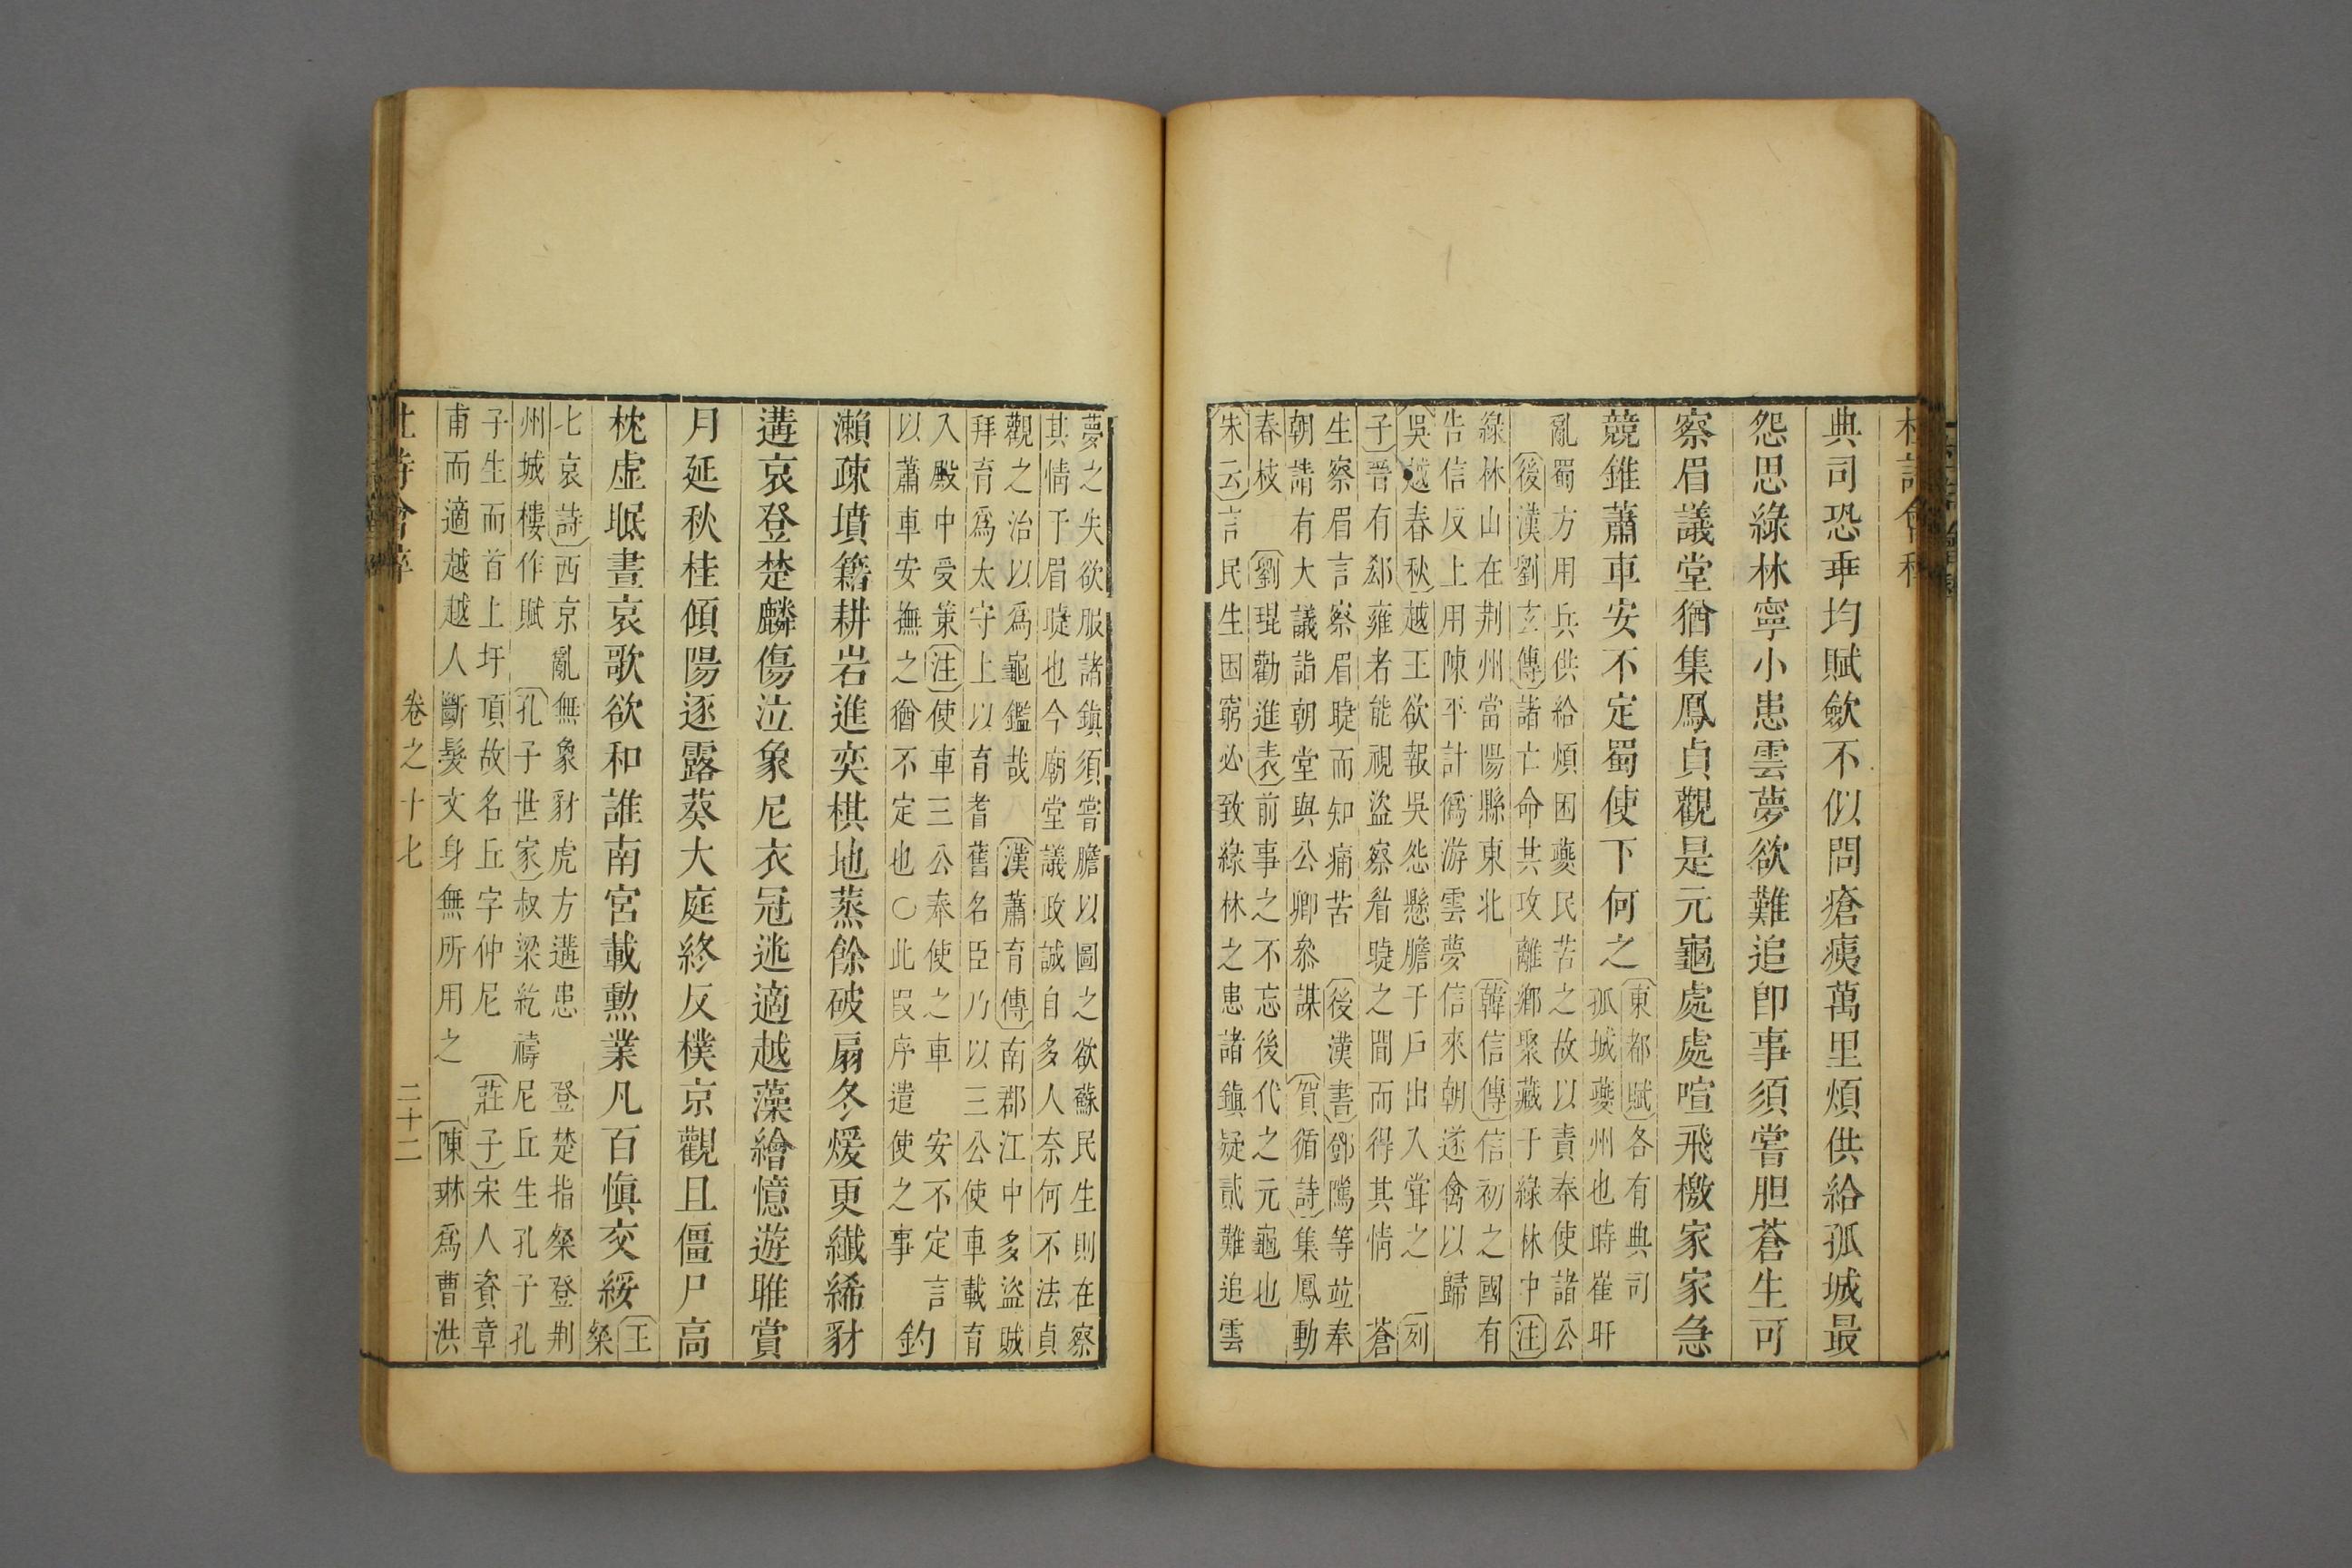 杜詩會稡
典司恐乖均賦斂不似問瘡痍萬里煩供給孤城最
怨思綠林寧小患雲夢欲難追卽事須嘗胆蒼生可
察眉議堂猶集鳳貞觀是元龜處處喧飛檄家家急
競錐蕭車安不定蜀使下何之
東都賦各有典司
孤城夔州也時崔旰
亂蜀方用兵供給煩困夔民苦之故以責奉使諸公
後漢劉玄傳諸亡命共攻離鄉聚藏于綠林中注
綠林山在荆州當陽縣東北 韓信傳信初之國有
告信反上用陳平計僞游雲夢信來朝遂禽以歸
吳越春秋越王欲報吳怨懸膽于戶出入甞之 列
子晋有郄雍者能視盜察眉睫之間而得其情 蒼
生察眉言察眉睫而知痛苦 後漢書鄧騭等竝奉
朝請有大議詣朝堂與公卿叅謀 賀循詩集鳳動
春枝 劉琨勸進表前事之不忘後代之元龜也
朱云言民生困窮必致綠林之患諸鎮疑貳難追雲
夢之失欲服諸鎮須嘗膽以圖之欲蘇民生則在察
其情于眉睫也今廟堂議政誠自多人奈何不法貞
觀之治以爲龜鑑哉 漢蕭育傳南郡江中多盜賊
拜育爲太守上以育耆舊名臣乃以三公使車載育
入殿中受策注使車三公奉使之車 安不定言
以蕭車安撫之猶不定也○此段序遣使之事
釣
瀨疎墳籍耕岩進奕棋地蒸餘破扇冬煖更纖絺豺
遘哀登楚麟傷泣象尼衣冠迷適越藻繪憶遊睢賞
月延秋桂傾陽逐露葵大庭終反樸京觀且僵尸高
枕虛眠晝哀歌欲和誰南宮載勲業凡百愼交綏
王
粲
七哀詩西京亂無象豺虎方遘患 登楚指粲登荆
州城樓作賦 孔子世家叔梁紇禱尼丘生孔子孔
子生而首上圩頂故名丘字仲尼 莊子宋人資章
甫而適越越人斷髮文身無所用之 陳琳爲曹洪
杜詩會稡 卷之十七 二十二